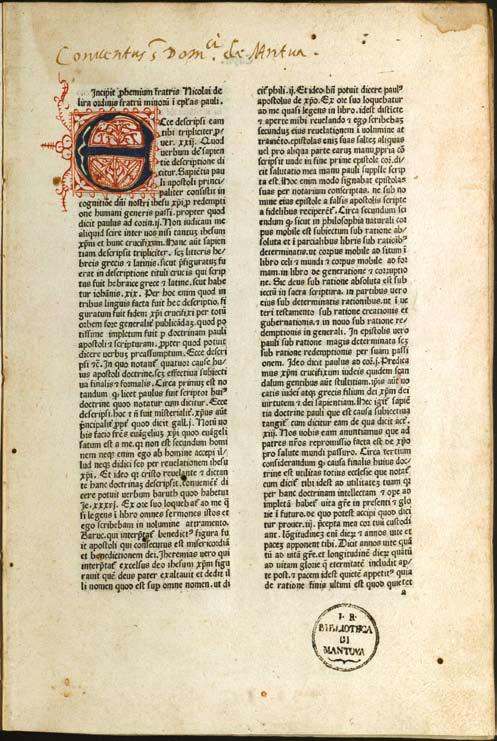 Conventus S Dom.ci de Mntua.
Incipit phemium fratris Nicolai de
lira ordinis fratrũ minorũ ĩ epl'as pauli.
Ecce descripsi eam
tibi tripliciter, p
uer. xxij. Quod
verbum ẽm sapien
tie descriptione di
citur. Sapiẽtia pau
li apostoli princi
paliter consistit in
cognitiõe dñi nostri ihesu xp̃i, p redempti
one humani generis passi. propter quod
dicit paulus ad corin. ij. Non iudicaui me
aliquid scire inter vos nisi tantuz ihesum
xp̃m et hunc crucifixum. Hanc aũt sapien
tiam descripsit tripliciter, sez litteris he/
breis grecis et latinis. sicut figuratuz fu
erat in descriptione tituli crucis qui scrip
tus fuit hebraice grece et latine. sicut habe
tur iohãnis. xix. Per hoc enim quod in
tribus linguis facta fuit hec descriptio, fi
guratum fuit fidem xp̃i crucifixi per totũ
orbem fore generalit' publicãdaz. quod po
tissime impletum fuit p doctrinam pauli
apostoli et scripturam. ppter quod potuit
dicere verbuz preassumptum. Ecce descri
psi ⁊c. In quo notant' quatuor cause hui'
apostoli doctrine. sez effectiua subiecti
ua finalis et formalis. Circa primuz est no
tandum q licet paulus fuit scriptor hui'
doctrine quod notatur cum dicitur. Ecce
descripsi. hoc tñ fuit misterialit'. xp̃us aũt
pncipalit'. ppt' quod dicit gall. j. Notũ vo
bis facio frẽs euãgeliuz xp̃i quod euãgeli
satum est a me. qi non est secundum homi
nem neq enim ego ab homine accepi il/
lud neq didici sed per reuelationem ihesu
xp̃i. Et ideo qi cristo reuelante et dictan
te hanc doctrinaz descripsit. cõueniẽt' di
cere potuit verbum baruth quod habetur
Je. xxxvj. Ex ore suo loquebat' ad me q
si legens ĩ libro omnes sermones istos et
ego scribebam in volumine attramento.
Baruc. qui interp̃tat' benedict' figura fu
it apostoli qui consecutus est misericordiã
et benedictionem dei. Iheremias vero qui
interp̃tat' excelsus deo ihesum xp̃m figu
rauit quẽ deus pater exaltauit et dedit il
li nomen quod est sup omne nomen. ut di
cit' phili. ij. Et ideo bñ potuit dicere paul'
apostolus de xp̃o. Ex ore suo loquebatur
ad me quasi legens in libro. idest distincte
et aperte mihi reuelando et ego scribebaz
secundum eius reuelationem ĩ uolumine at
tramẽto. epistolas enĩ suas saltez aliquas
vel pro aliqua parte earuz manu ppria cõ
scripsit unde in fine prime epistole cor. di
cit salutatio mea manu pauli supple scrip
ta est. Hoc enim modo signabat epistolas
suas per notarium conscriptas. ne sub no
mine eius epistole a falsis apostolis scripte
a fidelibus reciperẽt'. Circa secundum sci
endum q sicut in philosophia naturali cor
pus mobile est subiectum sub ratione ab/
soluta et ĩ parcialibus libris sub ratiõib'
determinatis. ut corpus mobile ad situm ĩ
libro celi et mundi et corpus mobile ad for
mam. in libro de generatione et corruptio
ne. Sic deus sub ratione absoluta est sub
iectũ in sacra scriptura. in partibus vero
eius sub determinatis rationibus. ut ĩ ue
teri testamento sub ratione creationis et
gubernationis. et in nouo sub ratione re/
demptionis in generali. In epistolis uero
pauli sub ratione magis determinata sez
sub ratione redemptionis per suam passi
onem. Ideo dicit paulus ad cor. j. Predica
mus xp̃m crucifixum iudeis quidem scan
dalum gentibus aũt stultitiam. ip̃is aũt vo
catis iudeis atqs grecis filium dei xp̃m dei
virtutem et dei sapientiam. Hec igit' sapiẽ
tia doctrine pauli que est causa subiectiua
tangit' cum dicitur eam de qua dicit act'.
xiij. Nos vobis eam anuntiamus que ad
patres nr̃os repromissio facta est de xp̃o
pro salute mundi passuro. Circa tertium
considerandum q causa finalis huius doc
trine est utilitas totius ecclesie que notat'
cum dicit' tibi idest ad utilitatez tuam qr
per hanc doctrinam intellectam et ope ad
impletã habet' vita grẽ in presenti et glo
rie ĩ futuro. de quo potest accipi quod dici
tur prouer. iij. p̃cepta mea cor tuũ custodi
ant. lõgitudinez enĩ dierz et annos uite et
pacez apponent tibi. Dicit annos uite quã
tũ ad uitã grẽ. et longitudinẽ dierz quãtũ
ad uitam glorie q eternitatẽ includit ap/
te post. et pacem idest quietẽ appetit' quia
de ratione finis ultimi est quod quietet
a
I. R.
BIBLIOTECA
DI
MANTOVA